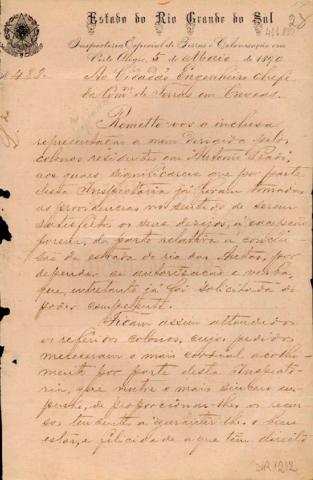 Estado do Rio Grande do Sul
28
Inspetoria Especial de Terras e Colonisação em
Porto Alegre, 5 de Maio de 1890
Nº 483.
Ao Cidadão Engenheiro Chefe
da Comm de Terras em
Remetto-vos a inclusa
representação a mim dirigida pelos
colonos residentes em Antonio Prado,
aos quaes significareis que por parte
desta Inspetoria já foram tomadas
as providencias no sentido de serem
satisfeitos os seus desejos, á excepção
porem, da parte relativa a conclu-
são da estrada do rio das Antas, por
depender de autorisação e verba,
que, entretanto já foi solicitada do
poder competente.
Ficam assim attendidos
os referidos colonos, cujos pedidos
mereceram o mais cordial acolhi-
mento por parte desta Inspeto-
ria, que nutre o mais sincero em-
penho, de proporcionar-lhes os recur-
sos tendentes a garantir-lhes o bem
estar, a felicidade a que têm direito
DIR 1212